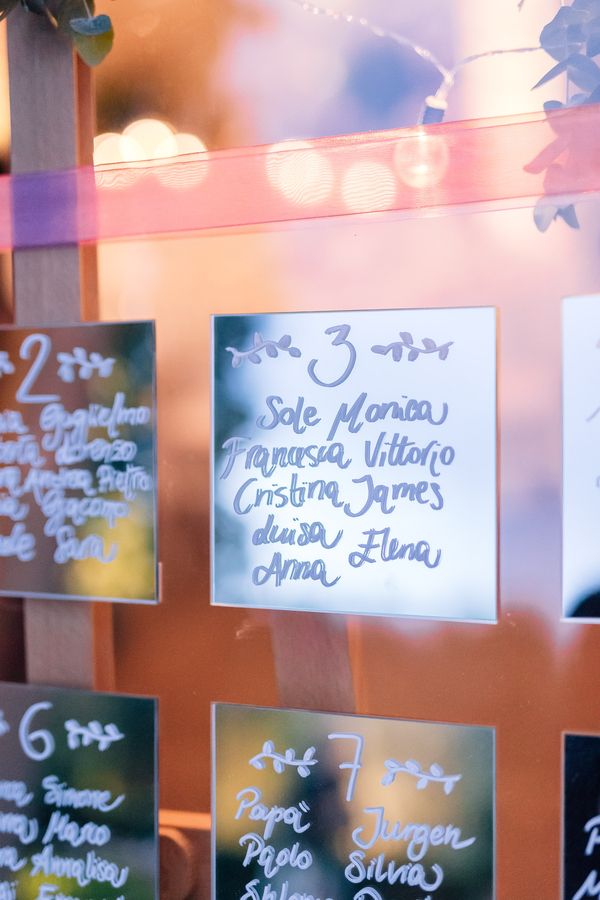 2
Guglielmo
Lorenzo
Andrea Pietro
Giacomo
Sara
3
Sole Monica
Francesca Vittorio
Cristina James
Luisa
Anna Elena
6
Simone
Marco
Annalisa
7
Papà Jurgen
Paolo Silvia